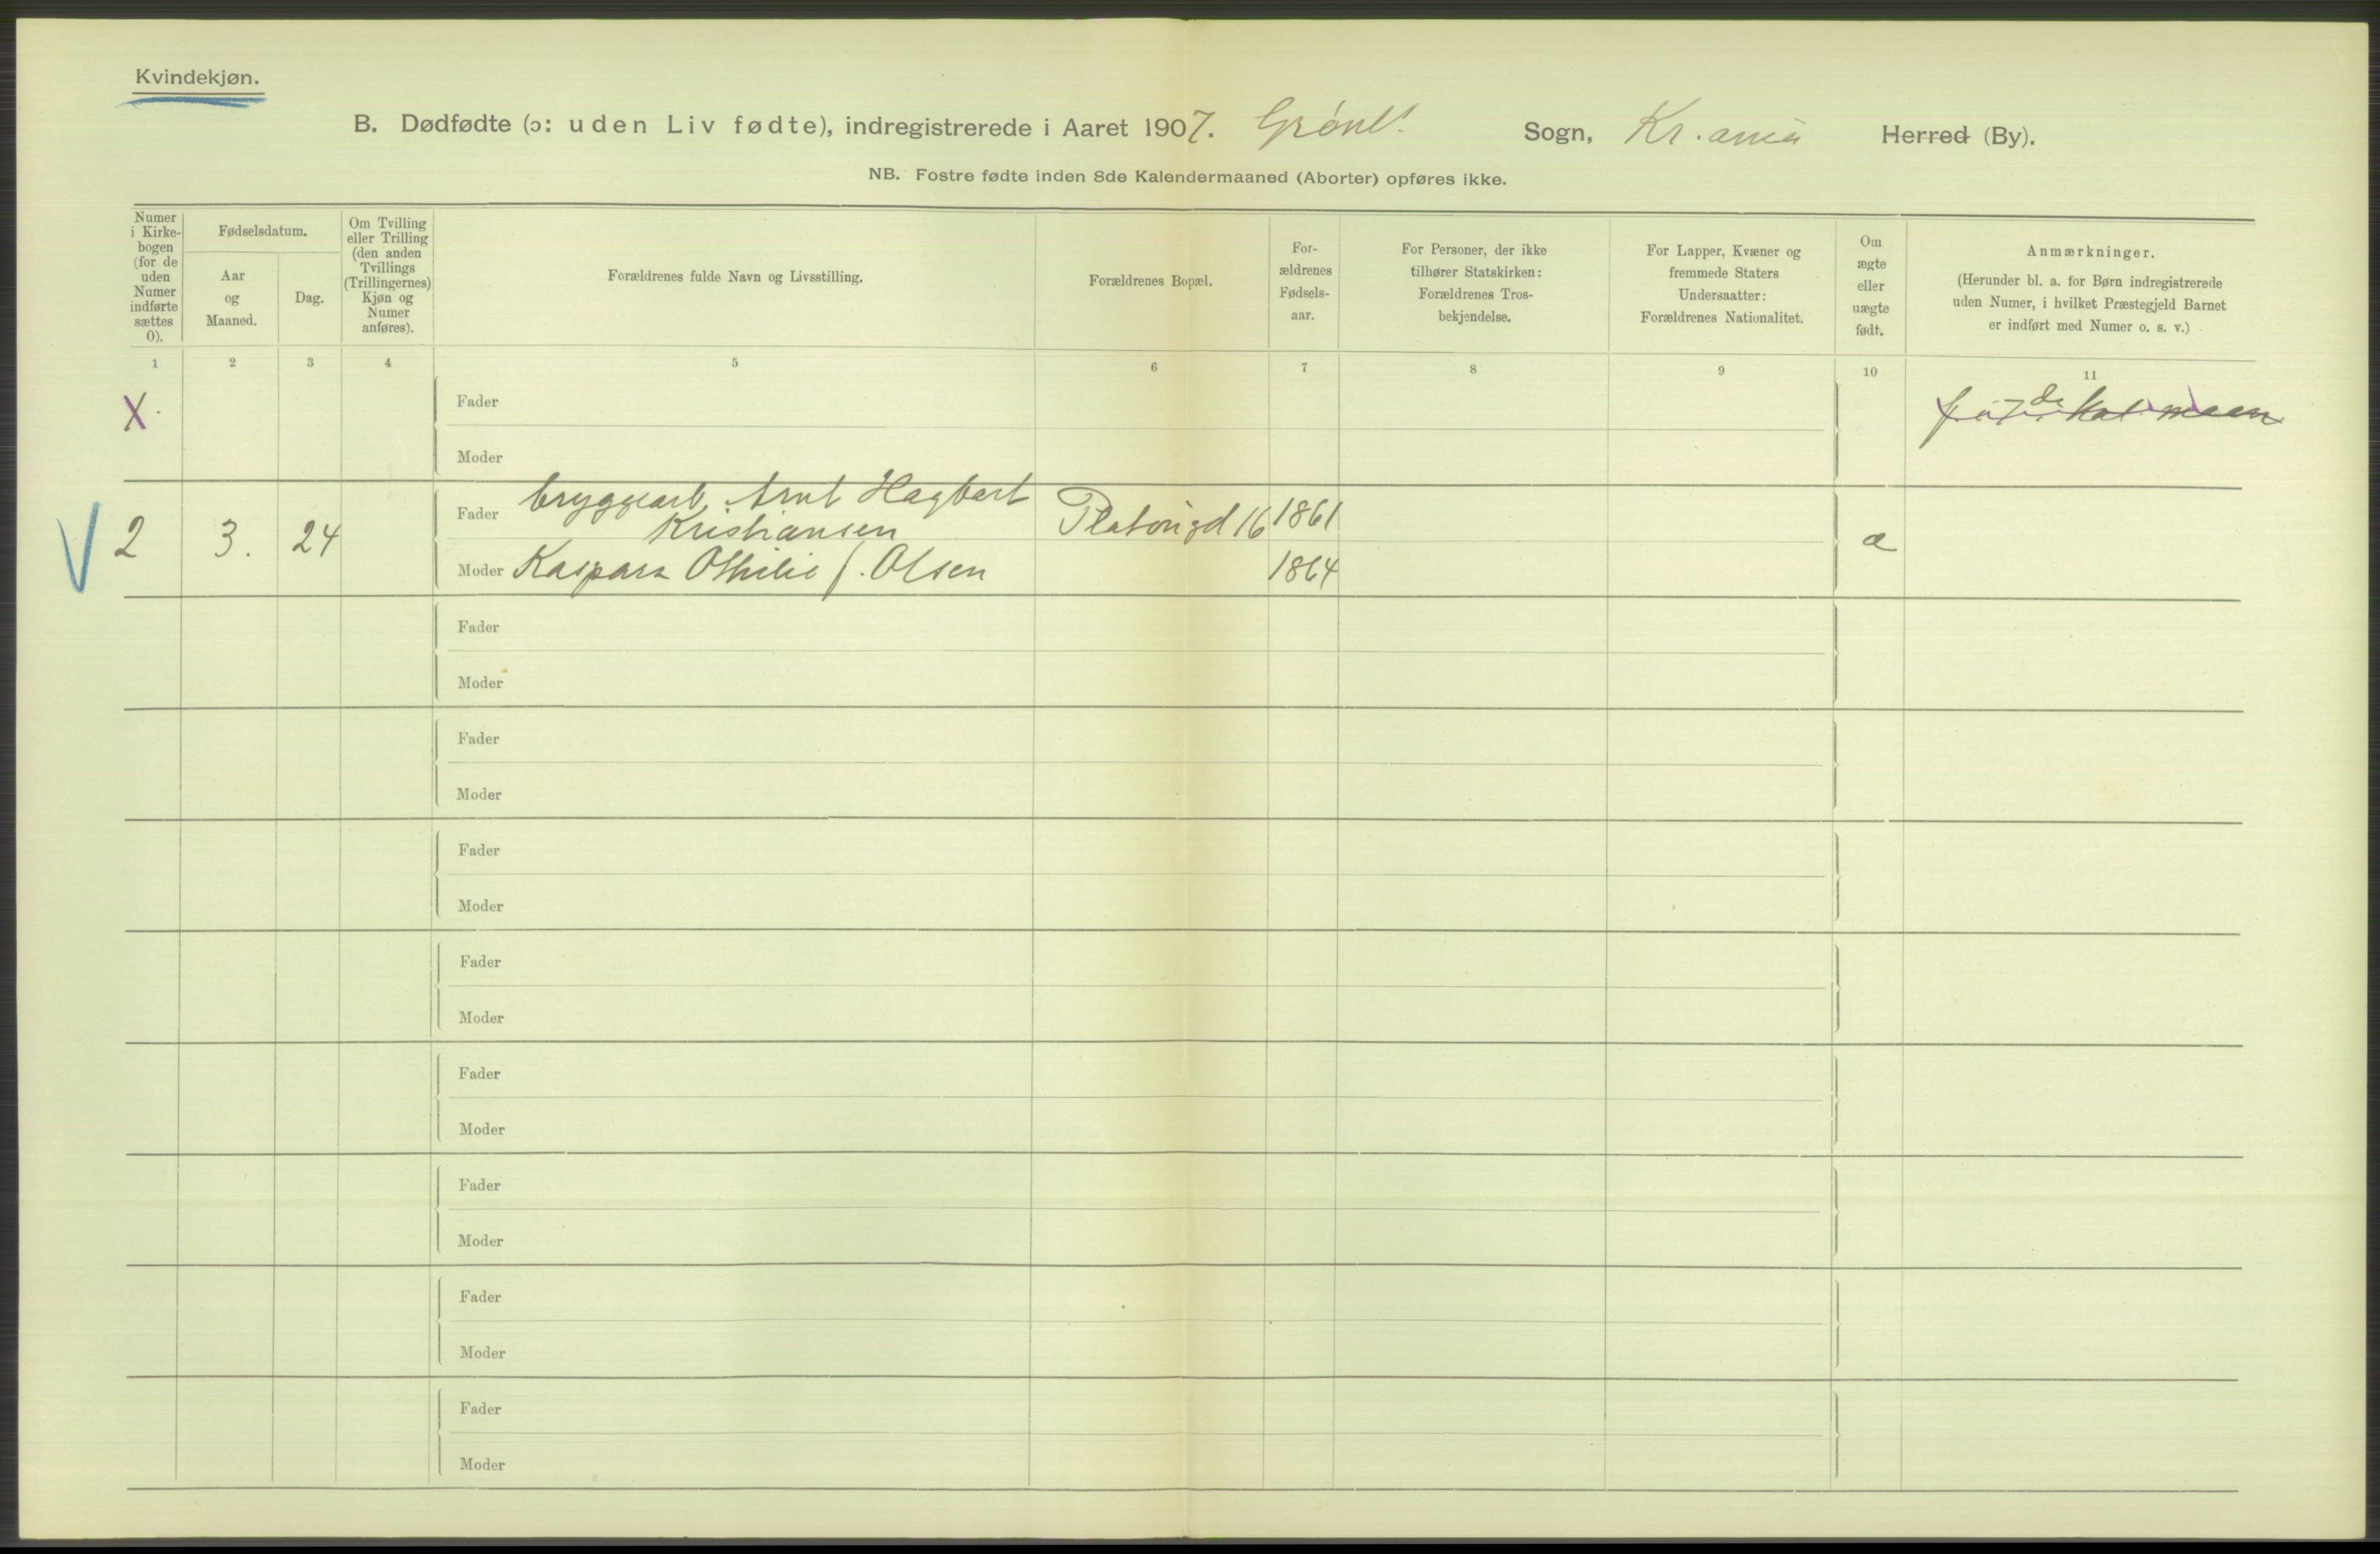 Kvindekjøn.
B. Dødfødte (ɔ: uden Liv fødte), indregistrerede i Aaret 1907. Grønl. Sogn, Kr.ania Herred (By).
NB. Fostre fødte inden 8de Kalendermaaned (Aborter) opføres ikke.
Numer i Kirke-bogen (for de uden Numer indførte sættes 0).
Fødselsdatum.
Aar og Maaned.
Dag.
Om Tvilling eller Trilling (den anden Tvillings (Trillingernes) Kjøn og Numer anføres).
Forældrenes fulde Navn og Livsstilling.
Forældrenes Bopæl.
For-ældrenes Fødsels-aar.
For Personer, der ikke tilhører Statskirken: Forældrenes Tros-bekjendelse.
For Lapper, Kvæner og fremmede Staters Undersaatter: Forældrenes Nationalitet.
Om ægte eller uægte født.
Anmærkninger.
(Herunder bl. a. for Børn indregistrerede uden Numer, i hvilket Præstegjeld Barnet er indført med Numer o. s. v.)
1 2 3 4 5 6 7 8 9 10 11
X
Fader
Moder
V 2 3. 24
Fader bryggearb. Arnt Hagbart Kristiansen 1861
Moder Kaspara Othilie f. Olsen 1864
Fader
Moder
Fader
Moder
Fader
Moder
Fader
Moder
Fader
Moder
Fader
Moder
Fader
Moder
Fader
Moder